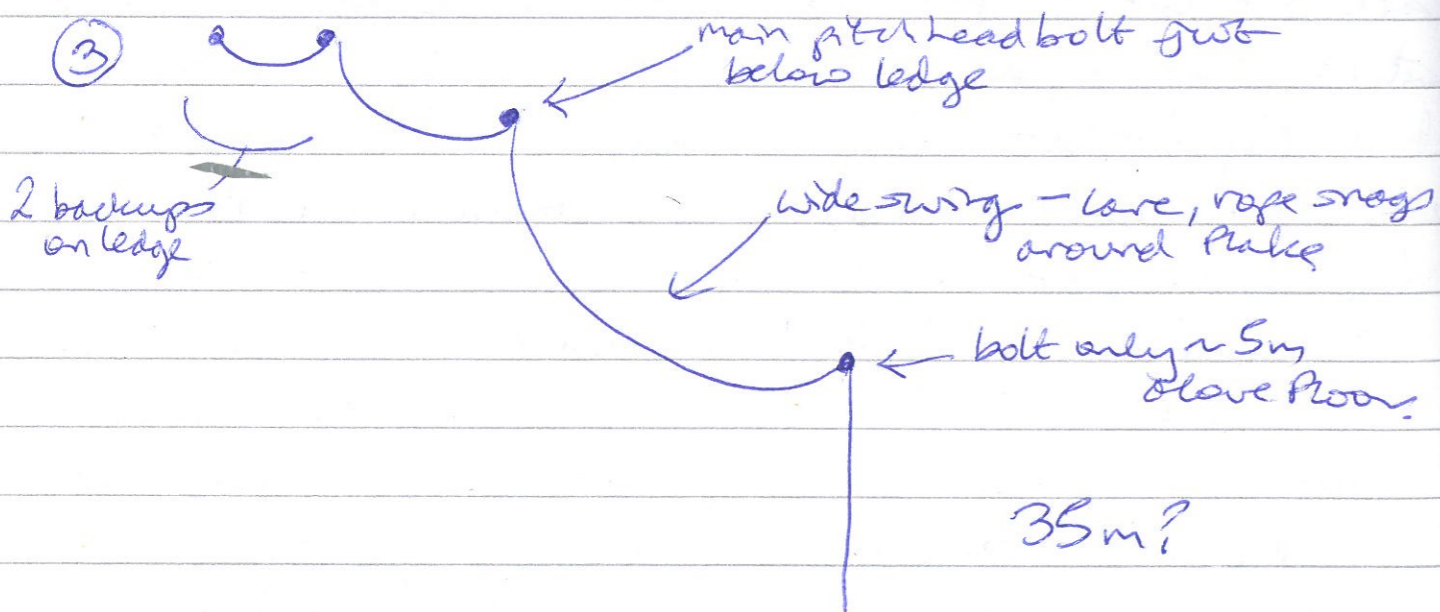 3
main pitchhead bolt just
below ledge
2 backups
on ledge
wide swing - care, rope snags
around flake
bolt only ~ 5m
above floor.
35m?